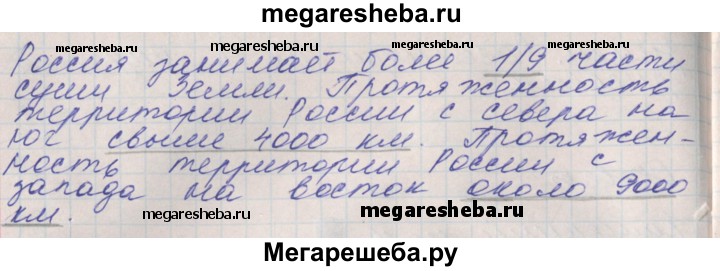 megaresheba.ru
Россия занимает более 1/9 части
суши Земли. Протяженность
территории России с севера на
юг свыше 4000 км. Протяжен-
ность территории России с
запада на восток около 9000
км.
megaresheba.ru
megaresheba.ru
megaresheba.ru
megaresheba.ru
megaresheba.ru
megaresheba.ru
megaresheba.ru
Мегарешеба.ру